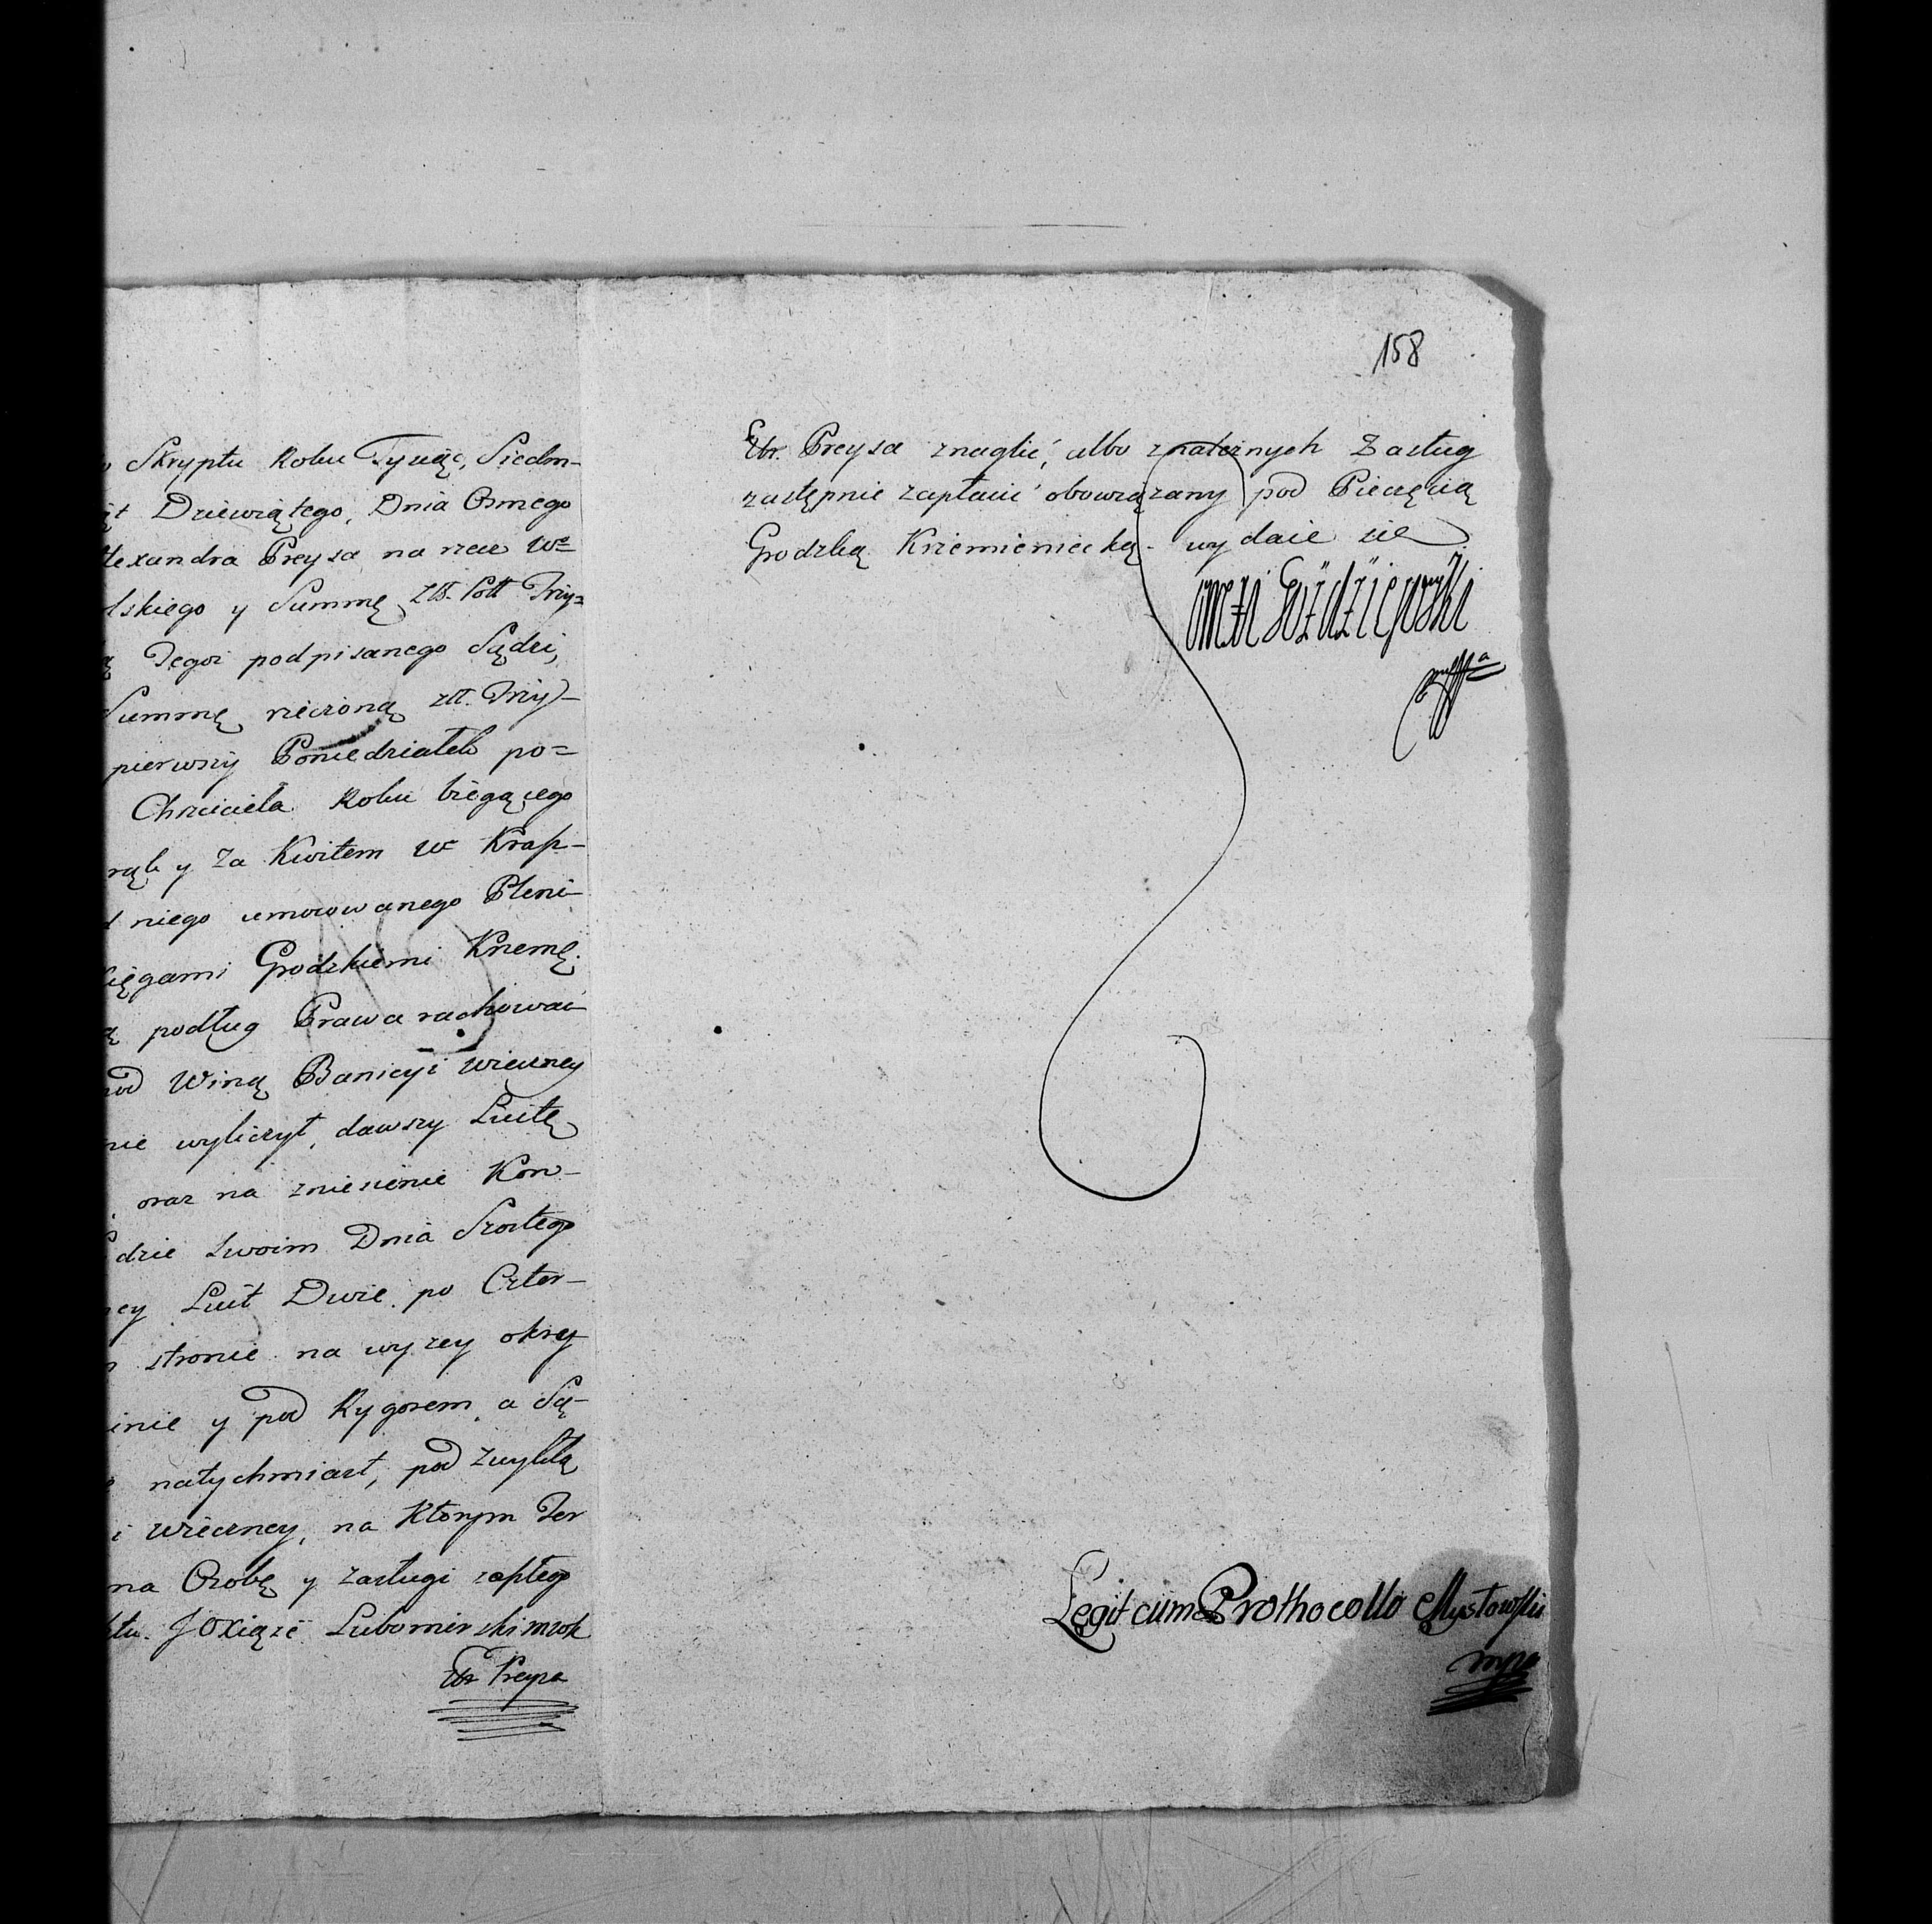 Skryptu Roku Tysiąc, Siedm-
Dziewiątego, Dnia Osmego
lexandra Preysa na rzecz Wo
lskiego y Summę Złł. Poll Trzy=
Tegoż podpisanego Sądzi,
Summę rzeczoną złł. Trzy-
pierwszy Poniedziałek po=
Chrzciciela Roku bieżącego
rąk y Za Kwitem Wo Krap-
niego umocowanego Pleni-
sięgami Grodzkiemi Krzemę.
podług Prawa rachować
pod Winą Banicyi wieczney
nie wyliczył, dawszy Luitę
oraz na zniesienie Kon-
dzie swoim Dnia Szostego
ney Luit Dwie po Czter-
stronie na wyzey okry
inie y pod Rygorem a Są-
natychmiast, pod zwykłą
i wieczney, na Ktorym Ter
na Osobę y zasługi zeszłego
ktu. JOXiąże Lubomirski mwk
Ur Preysa
158
Ur. Preysa znaglić, albo znależnych Zasług
zastępnie zapłacić obowiązany pod Pieczęcią
Grodzką Krzemieniecką. wydaie się
Goździejewski
Legit cum Prothocollo Mysłowski
mpa